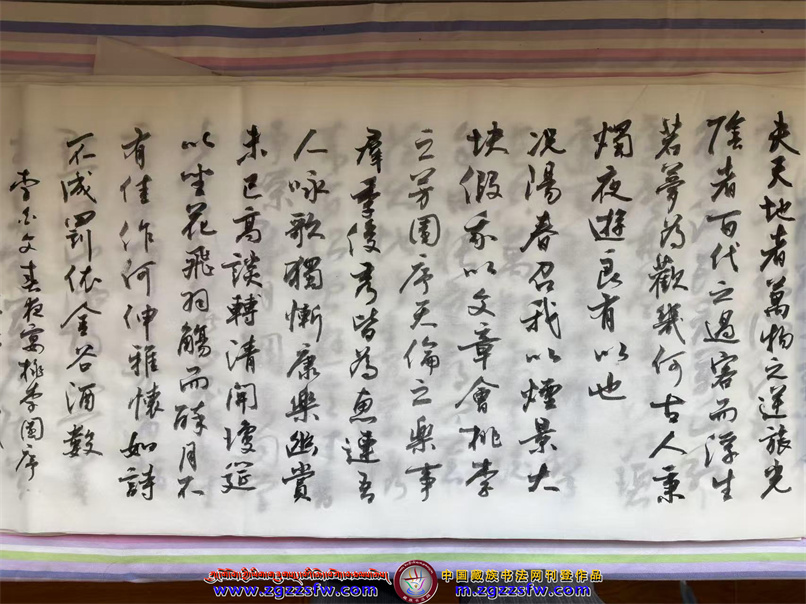 夫天地者萬物之逆旅光
陰者百代之過客而浮生
若夢為歡幾何古人秉
燭夜遊良有以也
況陽春召我以煙景大
塊假我以文章會桃李
之芳園序天倫之樂事
群季俊秀皆為惠連吾
人咏歌獨慚康樂幽賞
未已高談轉清開瓊筵
以坐花飛羽觴而醉月不
有佳作何伸雅懷如詩
不成罰依金谷酒數
李白文春夜宴桃李園序
www.zgzzsfw.com
中国藏族书法网刊登作品
m.zgzzsfw.com